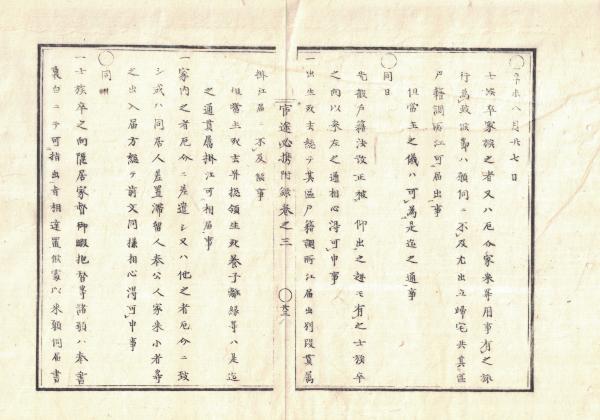 ○辛未八月廿七日
士族卒家族之者又ハ厄介家来等用事有之旅
行為致候節ハ願伺ニ不及尤出立帰宅共其区
戸籍調所江可届出事
但当主之儀ハ可為是迄之通事
○同日
先般戸籍法改正被 仰出之趣モ有之士族卒
之向以来左之通相心得可申事
一出生死去総テ其区戸籍調所江届出別段貫属
掛江届ニ不及候事
但当主死去并総領生死養子離縁等ハ是迄
之通貫属掛江可相届事
一家内之者厄介ニ差遣シ又ハ他之者厄介ニ致
シ或ハ同居人差置滞留人奉公人家来小者等
之出入届方総テ前文同様相心得可申事
○同
一士族卒之向隠居家督御暇抱替等諸願ハ奉書
裏白ニテ可指出者相達置候処以来願伺届書
官途必携附録巻之三